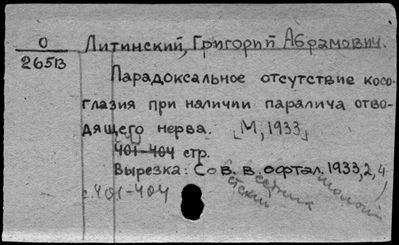 О
26513
Литинский, Григорий Абрамович.
Парадоксальное отсутствие косо-
глазия при наличии паралича отво-
дящего нерва. [М, 1933]
401-404 стр.
Вырезка: Сов. в. офтал. 1933, 2, 4
етский естник
с. 401-404